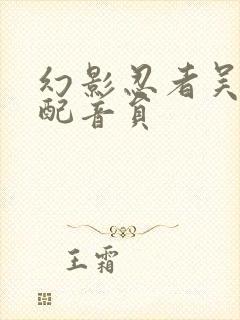 幻影忍者吴
配音员
王霜